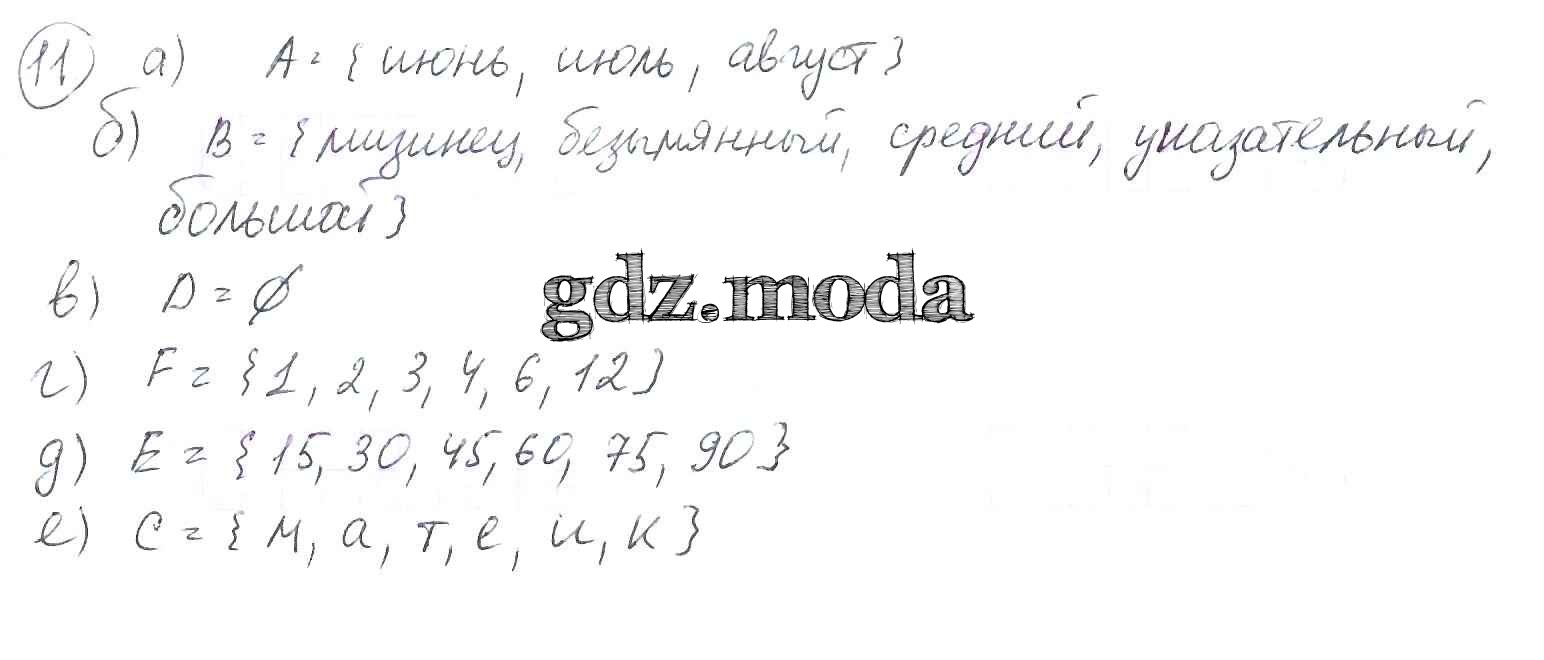 11 а) А = { июнь, июль, август }
б) В = { мизинец, безымянный, средний, указательный,
большой }
в) D = ∅
gdz.moda
г) F = { 1, 2, 3, 4, 6, 12 }
д) Е = { 15, 30, 45, 60, 75, 90 }
е) С = { м, а, т, е, и, к }